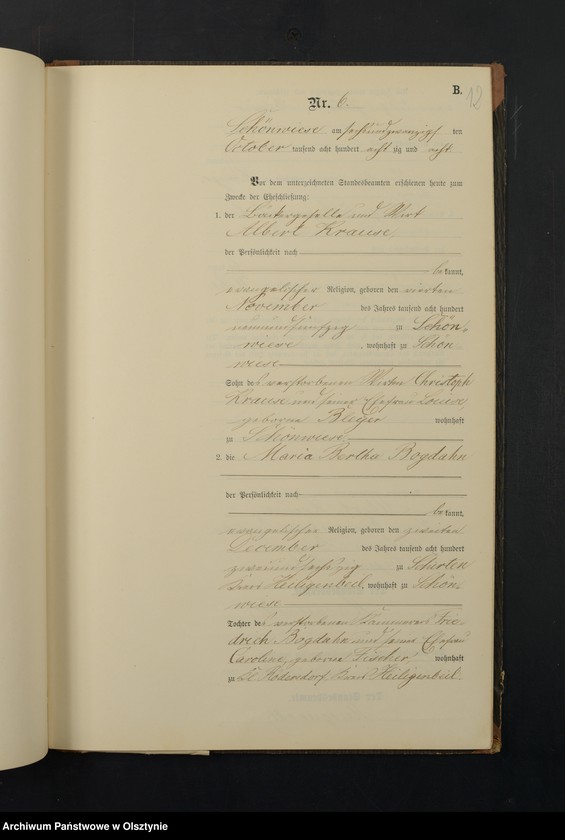 B.
12
Nr. 6.
Schönwiese am sechsundzwanzigsten ten
October tausend acht hundert acht zig und acht
Vor dem unterzeichneten Standesbeamten erschienen heute zum
Zwecke der Eheschließung:
1. der und Wirt
Albert Krause,
der Persönlichkeit nach
be kannt,
evangelischer Religion, geboren den vierten
November des Jahres tausend acht hundert
neunundfünfzig zu Schön-
wiese, wohnhaft zu Schön-
wiese
Sohn des verstorbenen Wirten Christoph
Krause und seiner Ehefrau Louise,
geborene Bleyer wohnhaft
zu Schönwiese
2. die Maria Bertha Bogdahn
der Persönlichkeit nach
be kannt,
evangelischer Religion, geboren den zweiten
December des Jahres tausend acht hundert
zweiundsechszig zu Schirten
Kreis Heiligenbeil, wohnhaft zu Schön-
wiese
Tochter des verstorbenen Kämmerers Frie-
drech Bogdahn und seiner Ehefrau
Caroline, geborene Fischer, wohnhaft
zu Kl. Rödersdorf Kreis Heiligenbeil.
Archiwum Państwowe w Olsztynie